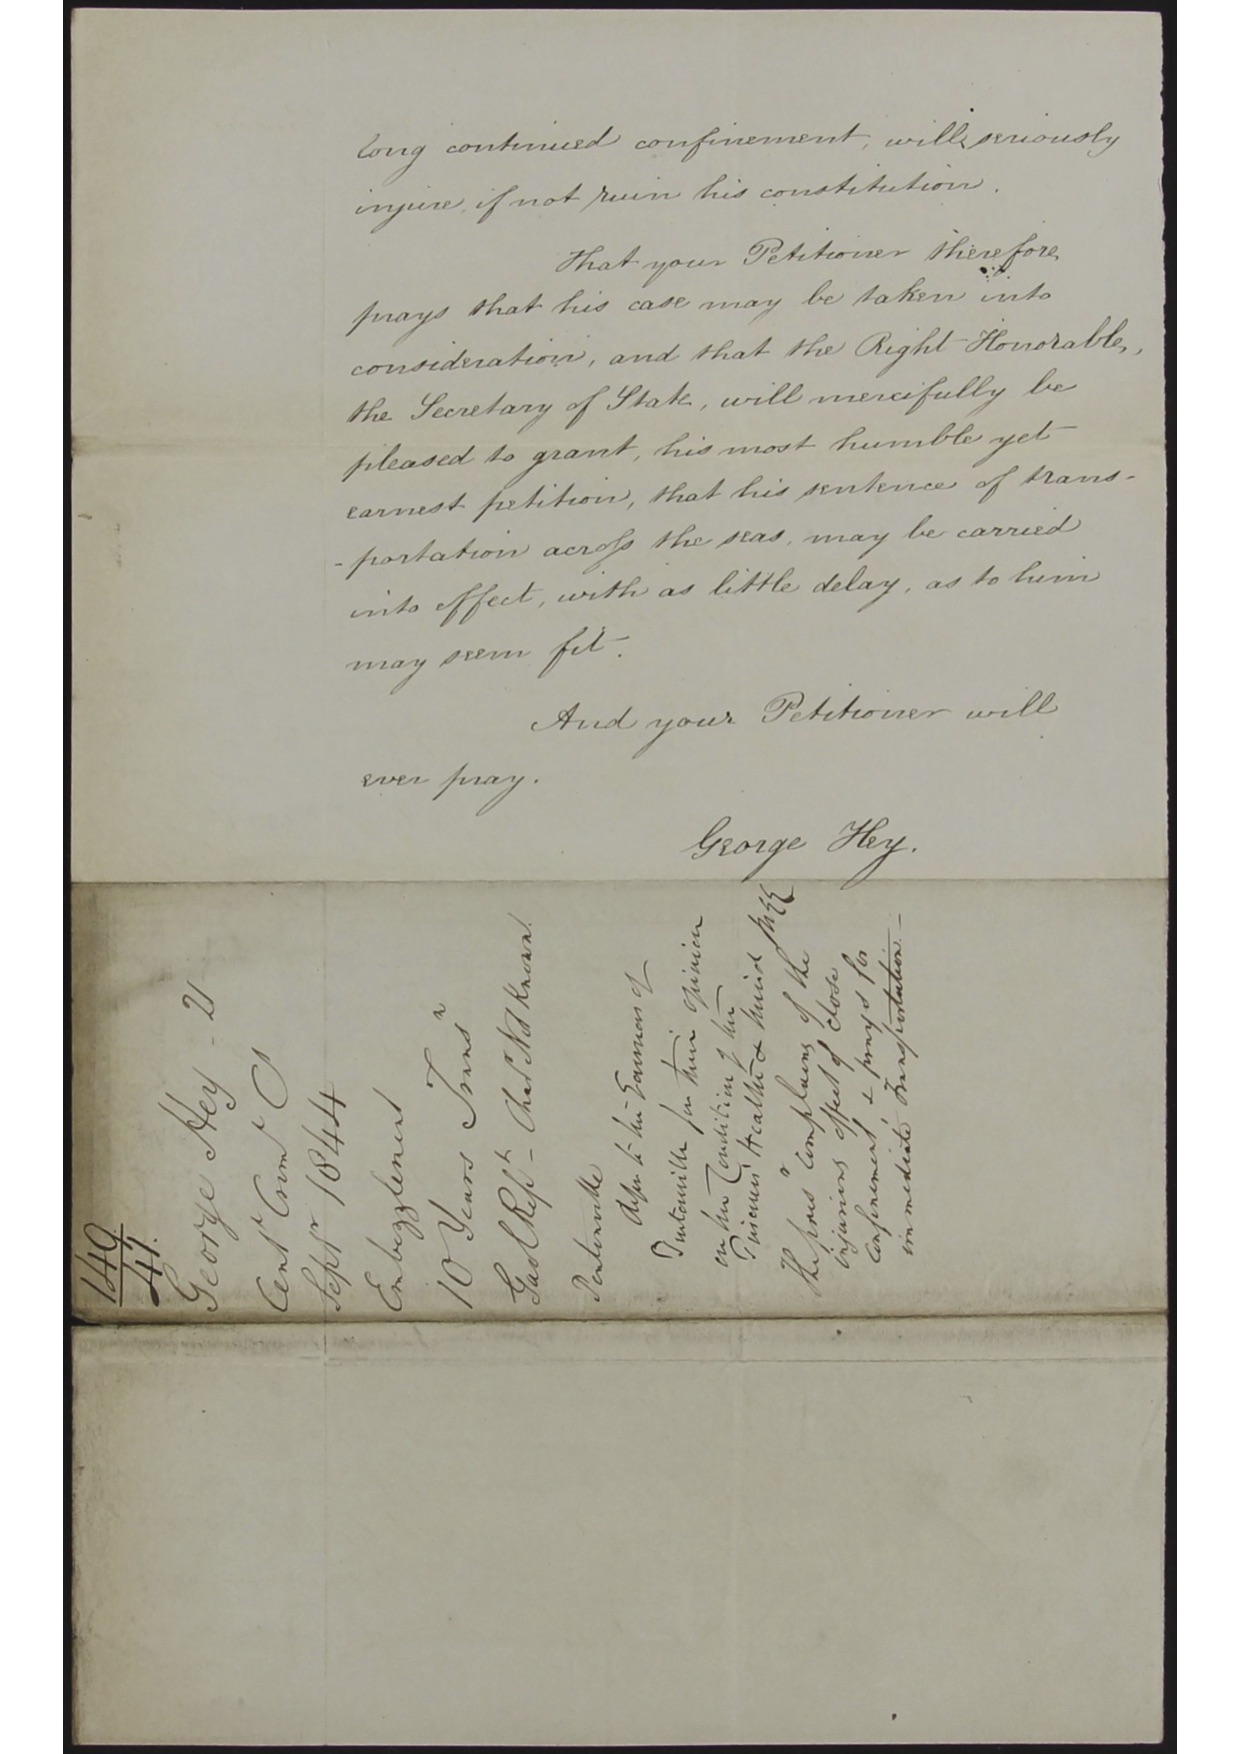 long continued confinement, will, seriously
injure, if not ruin his constitution.
That your Petitioner therefore,
prays that his case may be taken into
consideration, and that the Right Honorable,
the Secretary of State, will mercifully be
pleased to grant, his most humble yet
earnest petition, that his sentence of trans-
-portation across the seas, may be carried
into effect, with as little delay, as to him
may seem fit.
And your Petitioner will
ever pray.
George Hey.
149
41.
George Hey - 21
Cent Crim Ct
Septr 1844
Embezzlement
10 Years Transn
Gaol Rept - Char Not Known.
Pentonville
Refer to the Governors of
Pentonville for their opinion
on the Condition of this
Prisoners Health & mind
The prisr complains of the
injurious effect of close
confinement & prays for
immediate Transportation. -